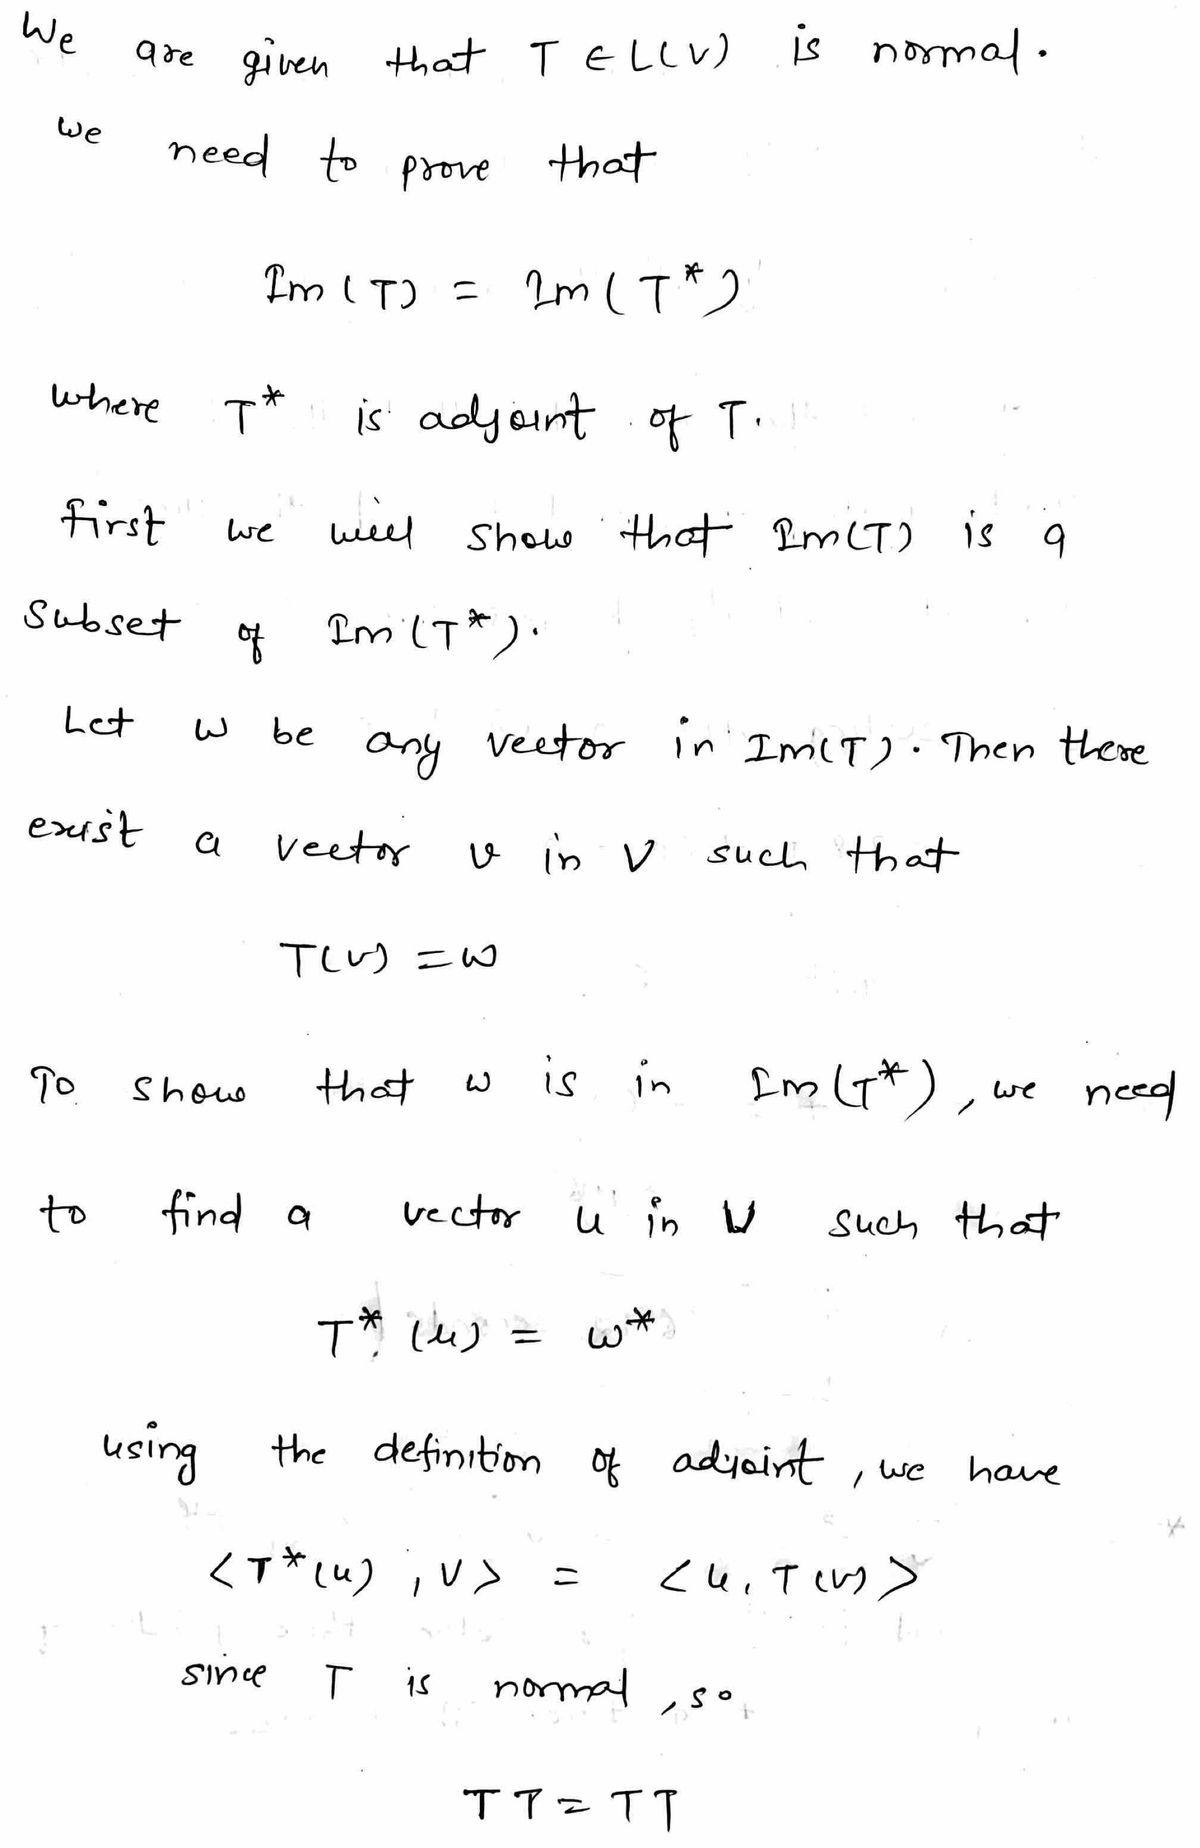 We are given that T ∈ L(V) is normal.
we need to prove that
Im (T) = Im (T*)
where T* is adjoint of T.
first we will show that Im(T) is a
subset of Im (T*).
Let w be any vector in Im(T). Then there
exist a vector v in V such that
T(v) = w
To show that w is in Im (T*), we need
to find a vector u in V such that
T* (u) = w*
using the definition of adjoint, we have
<T*(u), v> = <u, T(v)>
since T is normal, so
T T = T T